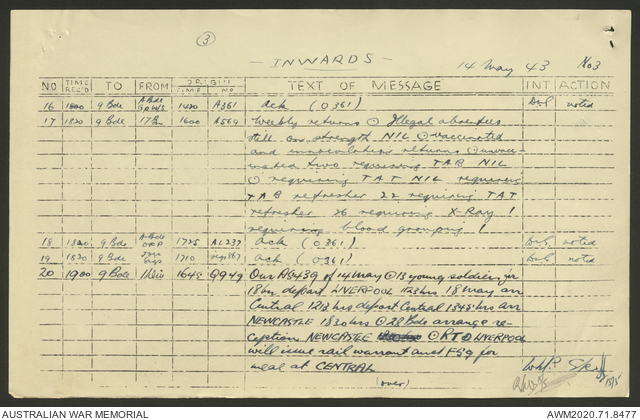 (3)
- INWARDS -
14 May 43 No3
NO TIME REC'D TO FROM ORIGIN TIME NO TEXT OF MESSAGE INT ACTION
16 1800 9 Bde 1420 A361 ack (0361) noted
17 1820 9 Bde 17 Bn 1600 A569 Weekly returns ⊙ Illegal absentees
still on strength NIL ⊙ vaccinated
and innoculation returns ⊙
two requiring TAB NIL
⊙ requiring TAT NIL requiring
TAB refresher 22 requiring TAT
refresher 26 requiring X-Ray 1
requiring blood grouping 1
18 1820 9 Bde 1725 AC237 ack (0361) noted
19 1820 9 Bde 1710 ack (0361) noted
20 1900 9 Bde 1 Div 1649 Our AG439 of 14 May ⊙ 13 young soldiers for
18 Bn depart LIVERPOOL 1123 hrs 18 May arr
Central 1213 hrs depart Central 1345 hrs arr
NEWCASTLE 1830 hrs ⊙ 28 Bde arrange re-
ception NEWCASTLE ⊙ RTO LIVERPOOL
will issue rail warrant and F59 for
meal at CENTRAL
(over)
AUSTRALIAN WAR MEMORIAL
AWM2020.71.8477